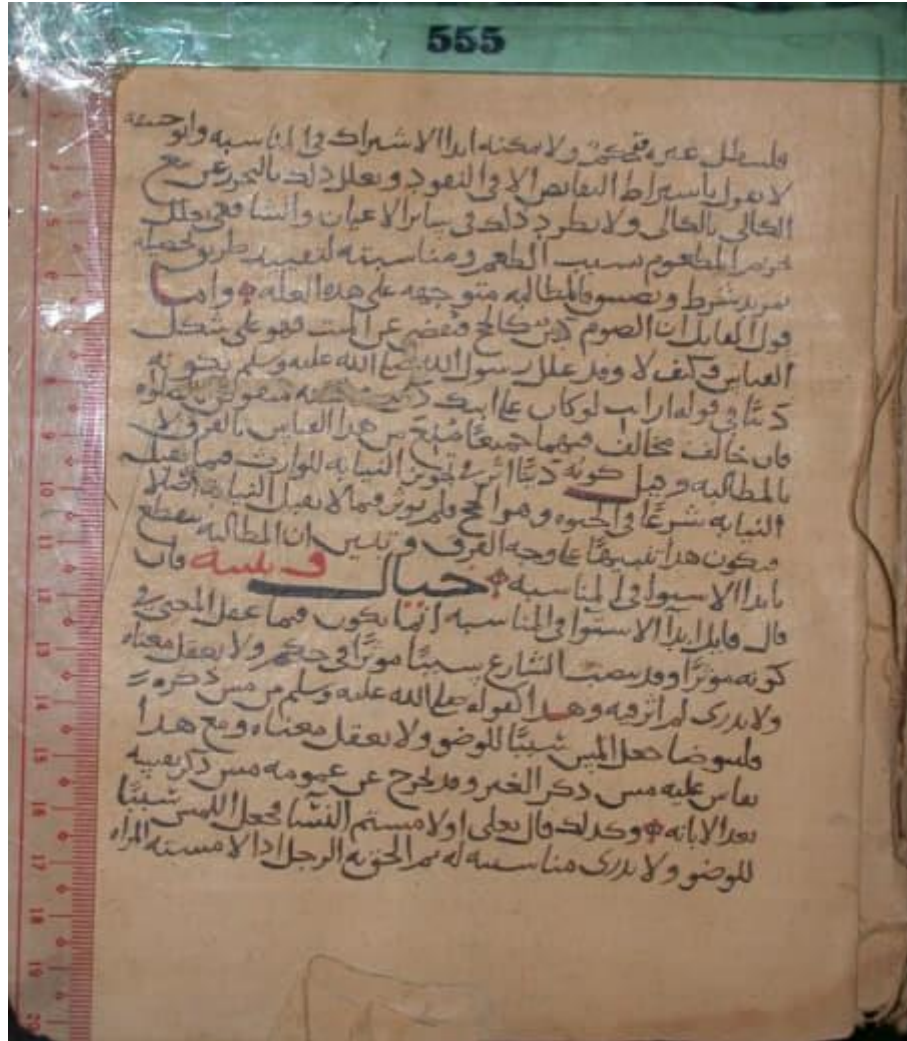 555
فليبطل غيره فيحكم ولا يمكنه ابدا الاشتراك في المناسبه وابو حنيفه
لا يقول باشتراط التقابض الا في النقود ويعلل ذلك بالتحرز عن بيع
الكالي بالكالي ولا يطرد ذلك في ساير الاعيان والشافعي يعلل
تحريم المطعوم بسبب الطعم ومناسبته لتقييد طريق تحصيله
بمزيد شرط وتضييق فالمطالبه متوجهه على هذه العله واما
قول القايل ان الصوم دين كالحج فيقضى عن الميت فهو على شكل
القياس وكيف لا وقد علل رسول الله صلى الله عليه وسلم بكونه
دينا في قوله ارايت لو كان على ابيك دين
فان خالف مخالف فيهما جميعا منع من هذا القياس بالفرق لا
بالمطالبه وقيل كونه دينا اثر في تجويز النيابه للوارث فيما يقبل
النيابه شرعا في الحيوه وهو الحج فلم يوثر فيما لا يقبل النيابه اصلا
فيكون هذا تنبيها على وجه الفرق وتبين ان المطالبه ينقطع
بابدا الاستوا في المناسبه خيال وتنبيه فان
قال قايل ابدا الاستوا في المناسبه انما يكون فيما عقل المعنى في
كونه موثرا وقد ينصب الشارع سببا موثرا في حكم ولا يعقل معناه
ولا يدرى لم اثر فيه وهذا كقوله صلى الله عليه وسلم من مس ذكره
فليتوضا جعل المس سببا للوضو ولا يعقل معناه ومع هذا
يقاس عليه مس ذكر الغير وقد يخرج عن عمومه مس ذكر نفسه
بعد الابانه وكذلك قال تعلى او لامستم النسا فجعل اللمس سببا
للوضو ولا يدرى مناسبته له ثم الحق به الرجل اذا لامسته المراه